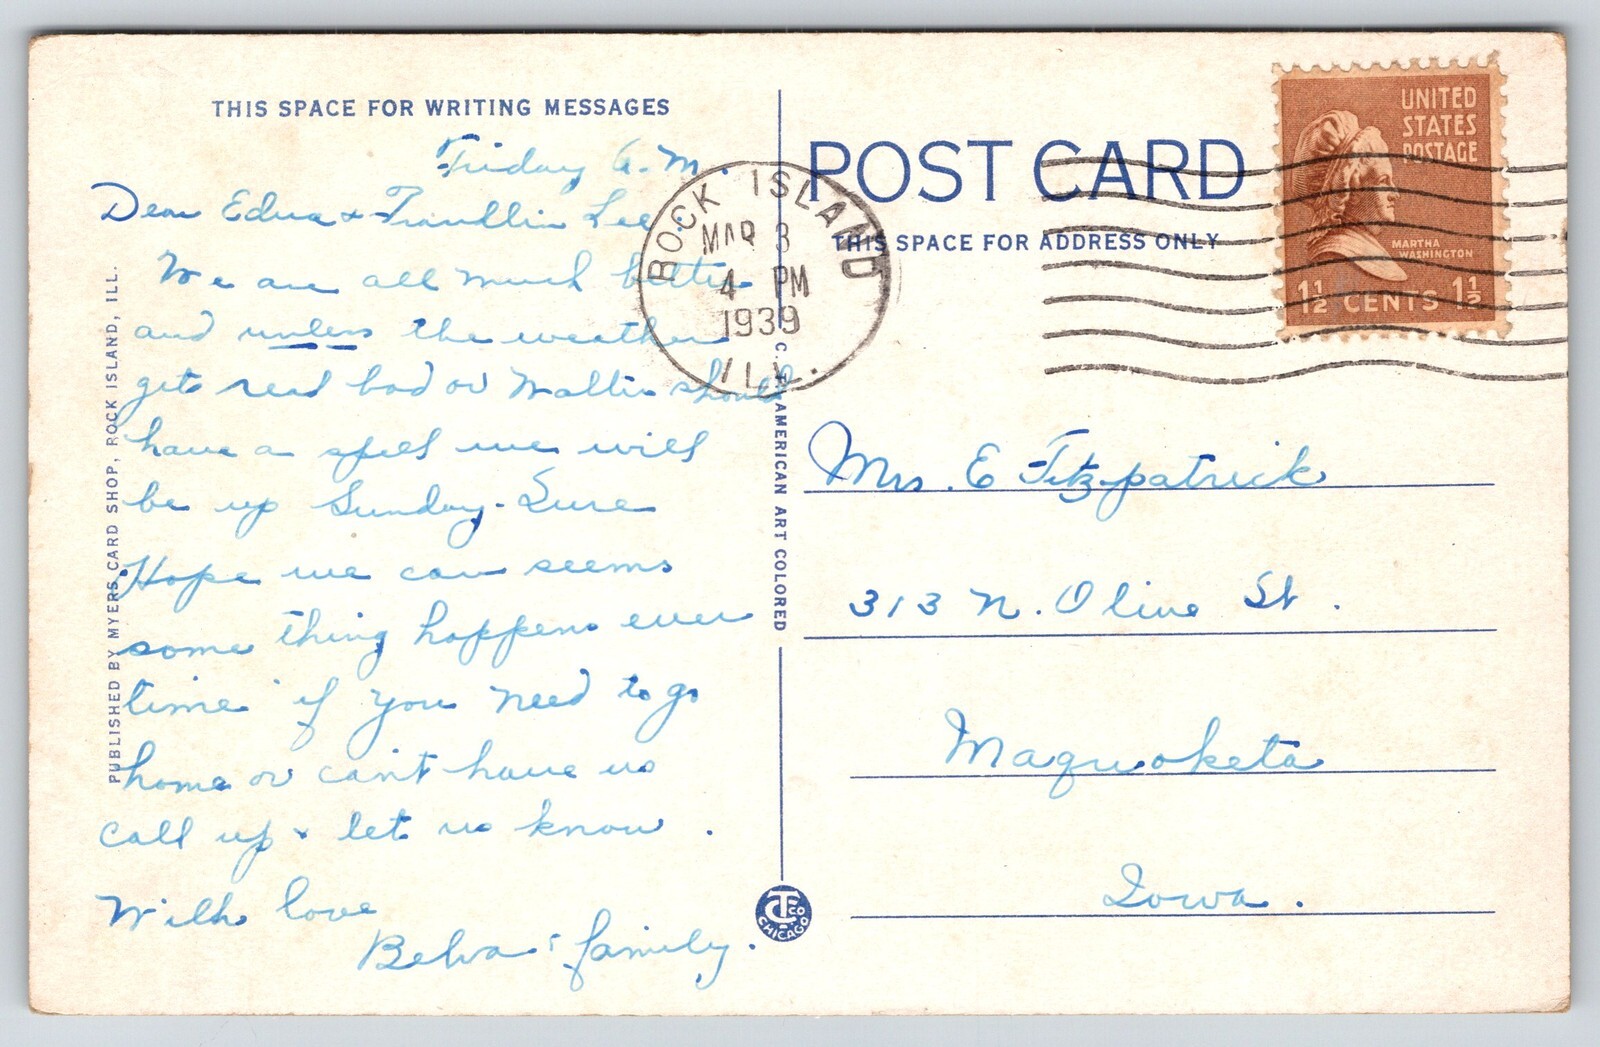 THIS SPACE FOR WRITING MESSAGES
Friday A.M.
Dear Edna & Franllin Lee:
We are all much better
and unless the weather
gets real bad or Walter should
have a spell we will
be up Sunday. Sure
Hope we can seems
some thing happens ever
time if you need to go
home or can't have us
call up & let us know.
With love
Belva & family.
PUBLISHED BY MYERS CARD SHOP, ROCK ISLAND, ILL.
AMERICAN ART COLORED
CT CO CHICAGO
POST CARD
THIS SPACE FOR ADDRESS ONLY
ROCK ISLAND
MAR 3
4 PM
1939
ILL.
UNITED
STATES
POSTAGE
MARTHA
WASHINGTON
1½ CENTS 1½
Mrs. E Fitzpatrick
313 N. Olive St.
Maquoketa
Iowa.